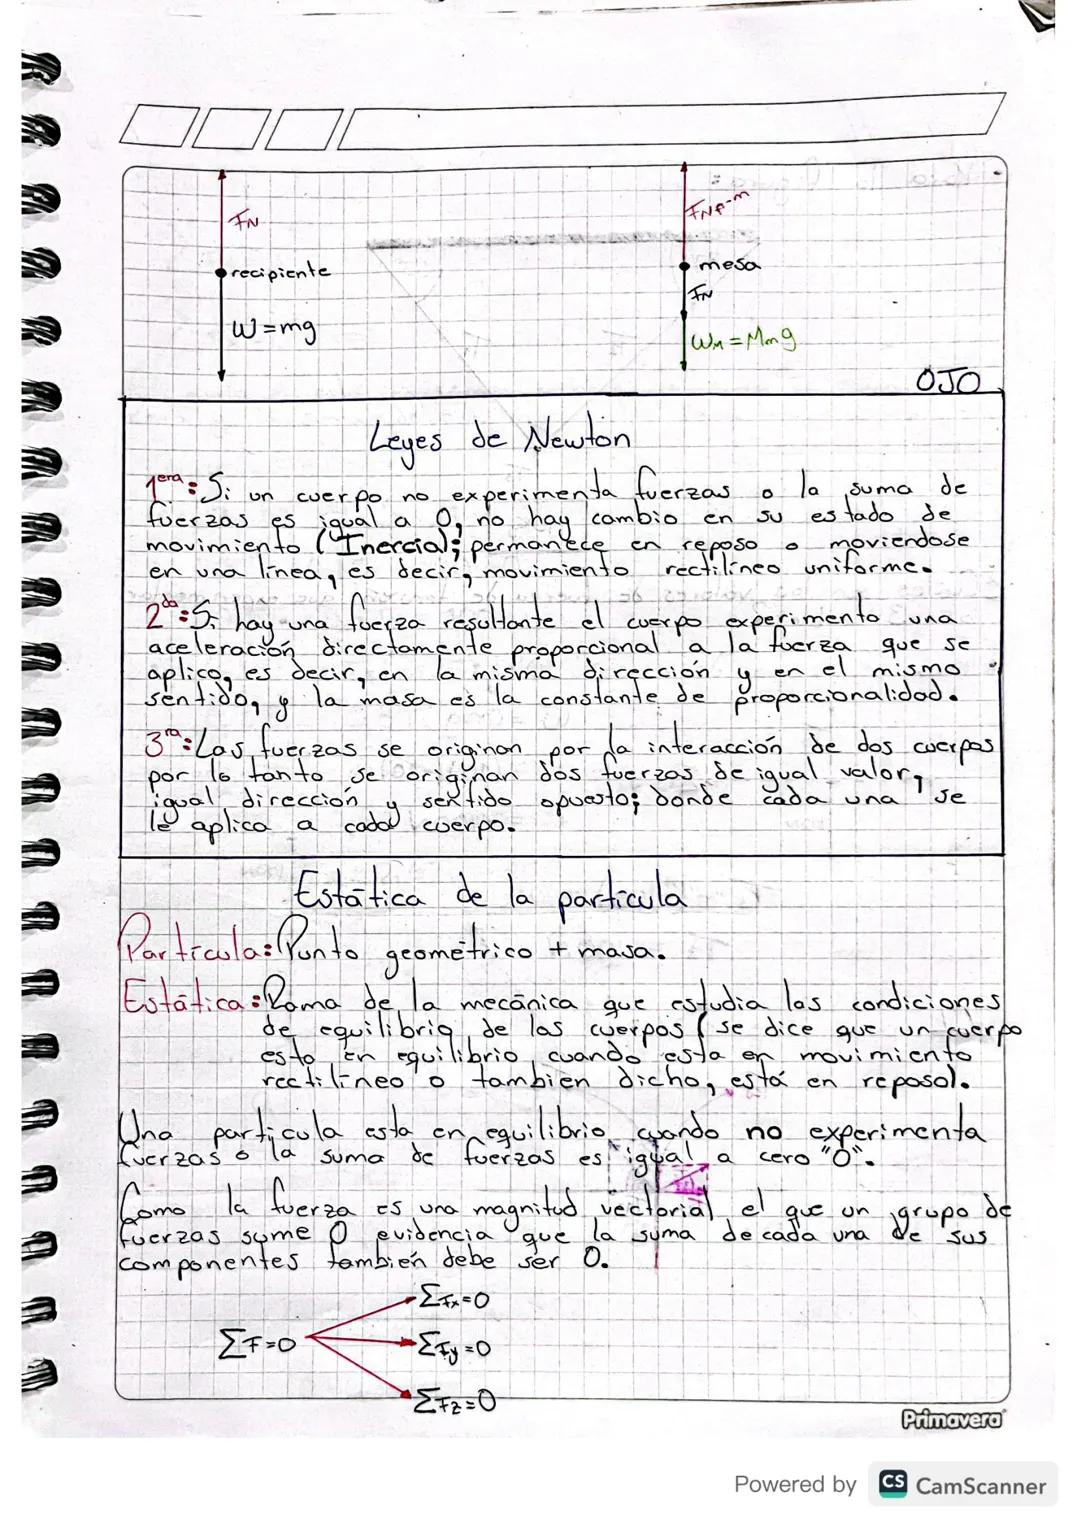 FN
recipiente
W=mg
FNP-m
mesa
FN
WM=Mmg
OJO
Leyes de Newton
1era: Si un cuerpo no experimenta fuerzas o la suma de
fuerzas es igual a 0, no hay cambio en su estado de
movimiento (Inercia); permanece en reposo o moviendose
en una línea, es decir, movimiento rectilíneo uniforme.
2da: Si hay una fuerza resultante el cuerpo experimento una
aceleración directamente proporcional a la fuerza que se
aplico, es decir, en la misma dirección y en el mismo
sentido, y la masa es la constante de proporcionalidad.
3ra: Las fuerzas se originan por la interacción de dos cuerpos
por lo tanto se originan dos fuerzas de igual valor,
igual dirección y sentido opuesto; donde cada una se
le aplica a cada cuerpo.
Estática de la partícula
Partícula: Punto geométrico + masa.
Estática: Rama de la mecánica que estudia las condiciones
de equilibrio de los cuerpos (se dice que un cuerpo
esta en equilibrio cuando esta en movimiento
rectilíneo o tambien dicho, está en reposo).
Una partícula esta en equilibrio cuando no experimenta
fuerzas o la suma de fuerzas es igual a cero "0".
Como la fuerza es una magnitud vectorial el que un grupo de
fuerzas sume 0 evidencia que la suma de cada una de sus
componentes también debe ser 0.
ΣFx=0
ΣF=0
ΣFy=0
ΣFz=0
Primavera
Powered by CS CamScanner